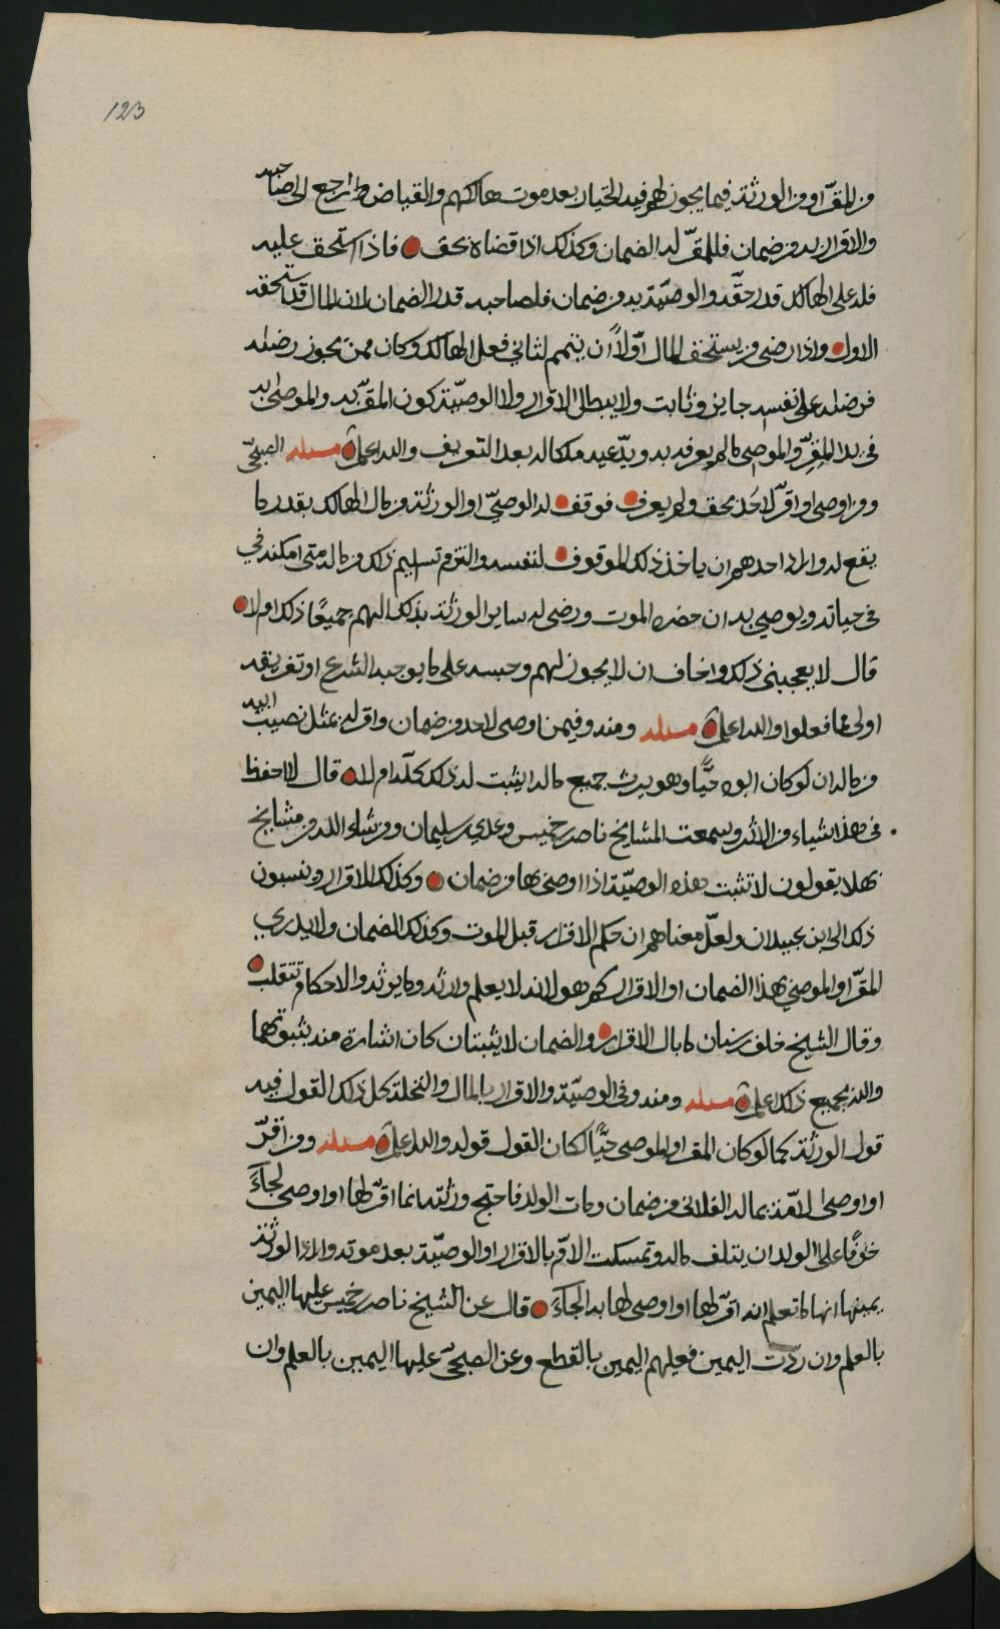 123
من المقرّ او من الورثة فيما يجوز لهم فيه الخيار بعد موت هالكهم والقياض وارجع الى صاحبه
والاقرار بدون ضمان فللمقرّ له الضمان وكذلك اذا قضاه بحق فاذا استحق عليه
فله على الهالك قدر حقّه والوصيّة بدون ضمان فلصاحبه قدر الضمان لان المال قد استحقه
الاول واذا رضي من يستحق المال اوّلاً ان يتمم لثاني فعل الهالك وكان ممن يجوز رضاه
فرضاه على نفسه جايز وثابت ولا يبطل الاقرار ولا الوصيّة كون المقرّ به والموصى به
في يد المقِرّ والموصي ما لم يعرفه به ويدّعيه ملكا له بعد التعريف والله اعلم مسئلة الصبحيّ
ومن اوصى او اقرّ لاحد بحق ولم يعرف فوقف له الوصيّ او الورثة من مال الهالك بقدر ما
يقع له واراد احدهم ان ياخذ ذلك الموقوف لنفسه والتزم تسليم ذلك من ماله متى امكنه في
في حياته ويوصي به ان حضره الموت ورضي له ساير الورثة بذلك الهم جميعًا ذلك ام لا
قال لا يعجبني ذلك واخاف ان لا يجوز لهم وحبسه على ما يوجبه الشرع او تفريقه
اولى مما فعلوا والله اعلم مسئلة ومنه وفيمن اوصى لاحد من ضمان واقر له بمثل نصيب ابيه
من ماله ان لو كان ابوه حيًّا وهو يرث جميع ماله ايثبت له ذلك كلّه ام لا قال لا احفظ
في هذا شياء من الاثر وسمعت المشايخ ناصر بن خميس وعدي بن سليمان ومن شاء الله من مشايخ
نهلا يقولون لا تثبت هذه الوصيّة اذا اوصى بها من ضمان وكذلك الاقرار وينسبون
ذلك الى ابن عبيدان ولعلّ معناهم ان حكم الاقرار قبل الموت وكذلك الضمان ولا يدري
المقرّ او الموصي بهذا الضمان او الاقرار كم هو لانه لا يعلم وارثه وما يورثه والاحكام تتقلب
وقال الشيخ خلف بن سنان ما بال الاقرار والضمان لا يثبتان كان اشارة منه بثبوتهما
والله بجميع ذلك اعلم مسئلة ومنه وفي الوصيّة والاقرار بالمال والنخلة كل ذلك القول فيه
قول الورثة كما لو كان المقر او الموصي حيًّا لكان القول قوله والله اعلم مسئلة ومن اقرّ
او اوصى لامّه بماله الفلاني من ضمان ومات الولد فاحتج ورثته انما اقرّ لها او اوصى لجاءً
خوفًا على الولد ان يتلف ماله وتمسكت الامّ بالاقرار او الوصيّة بعد موته واراد الورثة
يمينها انها ما تعلم انه اقرّ لها او اوصى لها به الجاءً قال عن الشيخ ناصر بن خميس عليها اليمين
بالعلم وان ردّت اليمين فعليهم اليمين بالقطع وعن الصبحيّ عليها اليمين بالعلم وان